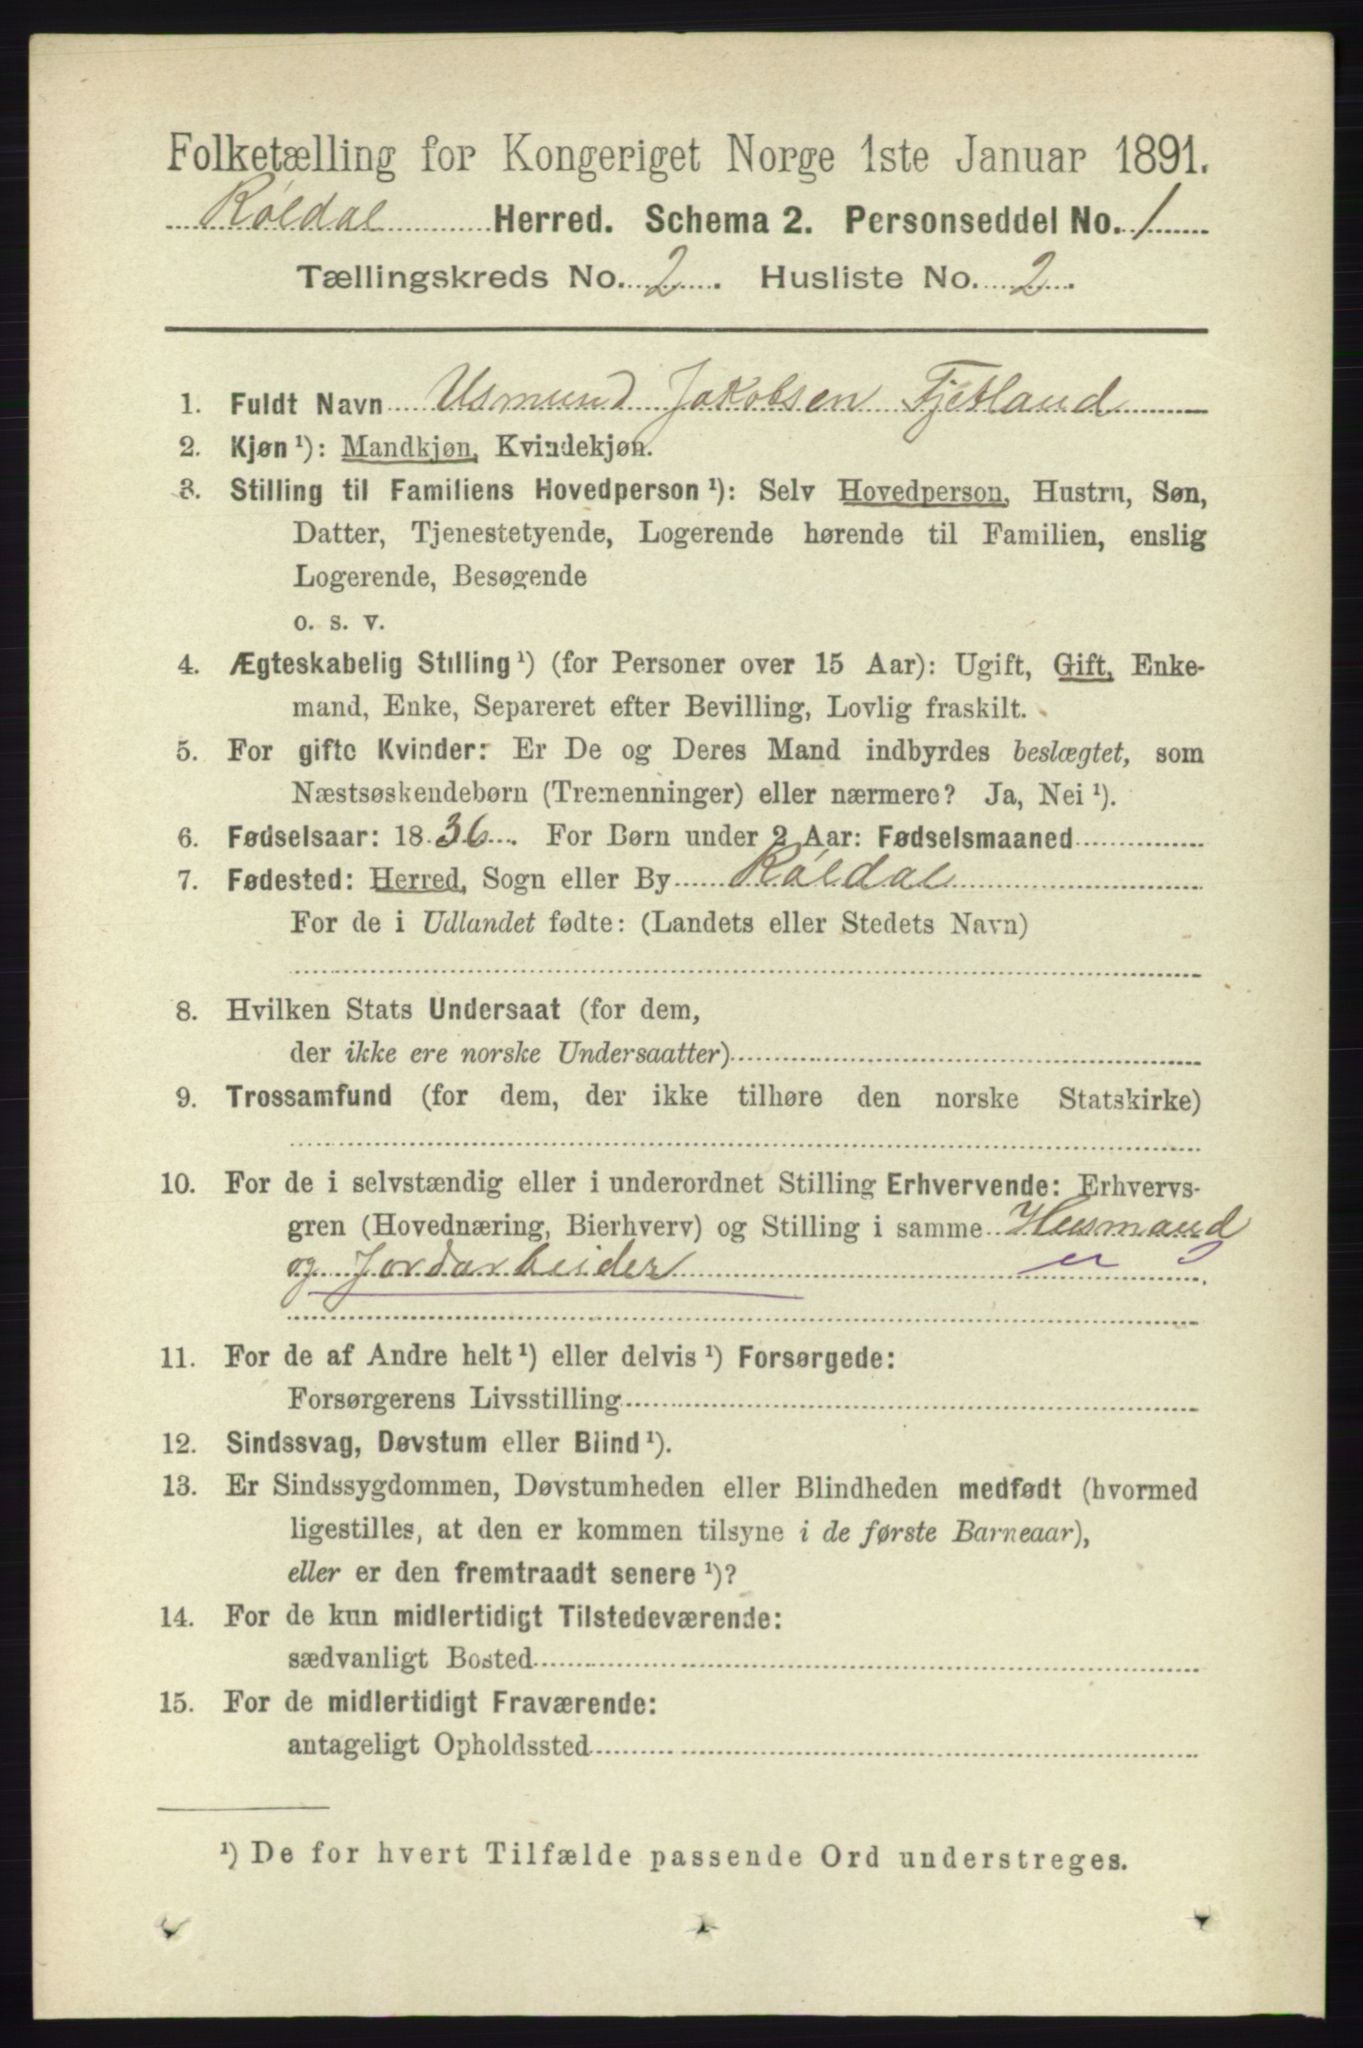 Folketælling for Kongeriget Norge 1ste Januar 1891.
Røldal Herred. Schema 2. Personseddel No. 1
Tællingskreds No. 2. Husliste No. 2.
1. Fuldt Navn Usmund Jakobsen Fjetland
2. Kjøn¹): Mandkjøn, Kvindekjøn.
3. Stilling til Familiens Hovedperson¹): Selv Hovedperson, Hustru, Søn,
Datter, Tjenestetyende, Logerende hørende til Familien, enslig
Logerende, Besøgende
o. s. v.
4. Ægteskabelig Stilling¹) (for Personer over 15 Aar): Ugift, Gift, Enke-
mand, Enke, Separeret efter Bevilling, Lovlig fraskilt.
5. For gifte Kvinder: Er De og Deres Mand indbyrdes beslægtet, som
Næstsøskendebørn (Tremenninger) eller nærmere? Ja, Nei¹).
6. Fødselsaar: 1836. For Børn under 2 Aar: Fødselsmaaned
7. Fødested: Herred, Sogn eller By Røldal
For de i Udlandet fødte: (Landets eller Stedets Navn)
8. Hvilken Stats Undersaat (for dem,
der ikke ere norske Undersaatter)
9. Trossamfund (for dem, der ikke tilhøre den norske Statskirke)
10. For de i selvstændig eller i underordnet Stilling Erhvervende: Erhvervs-
gren (Hovednæring, Bierhverv) og Stilling i samme Husmand
og Jordarbeider
11. For de af Andre helt¹) eller delvis¹) Forsørgede:
Forsørgerens Livsstilling
12. Sindssvag, Døvstum eller Blind¹).
13. Er Sindssygdommen, Døvstumheden eller Blindheden medfødt (hvormed
ligestilles, at den er kommen tilsyne i de første Barneaar),
eller er den fremtraadt senere¹)?
14. For de kun midlertidigt Tilstedeværende:
sædvanligt Bosted
15. For de midlertidigt Fraværende:
antageligt Opholdssted
¹) De for hvert Tilfælde passende Ord understreges.